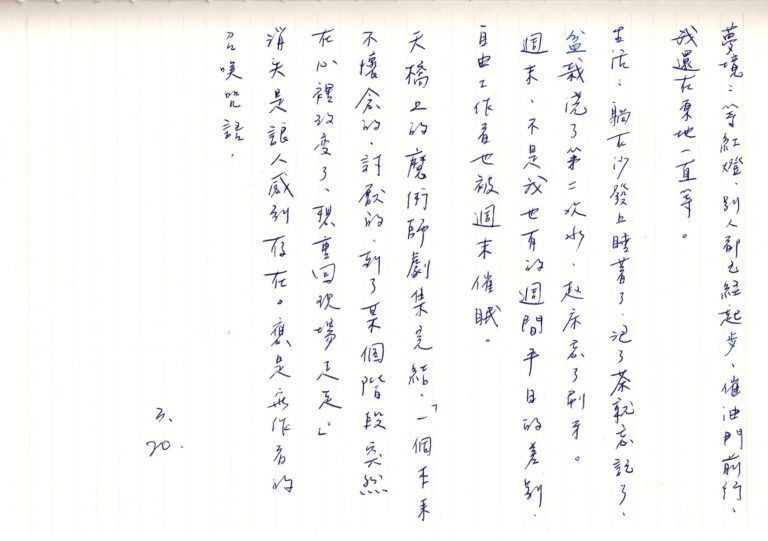 夢境：等紅燈、別人都已經起步、催油門前行、
我還在原地一直等。
生活：躺在沙發上睡著了、泡了茶就忘記了、
盆栽澆了第二次水、起床忘了刷牙。
週末、不是我也有的週間平日的差別、
自由工作者也被週末催眠。
天橋上的魔術師劇集完結、「一個本來
不懷念的、討厭的、到了某個階段突然
在心裡改變了、想重回現場走走」
消失是讓人感到存在。應是無作者的
召喚咒語。
3.
20.